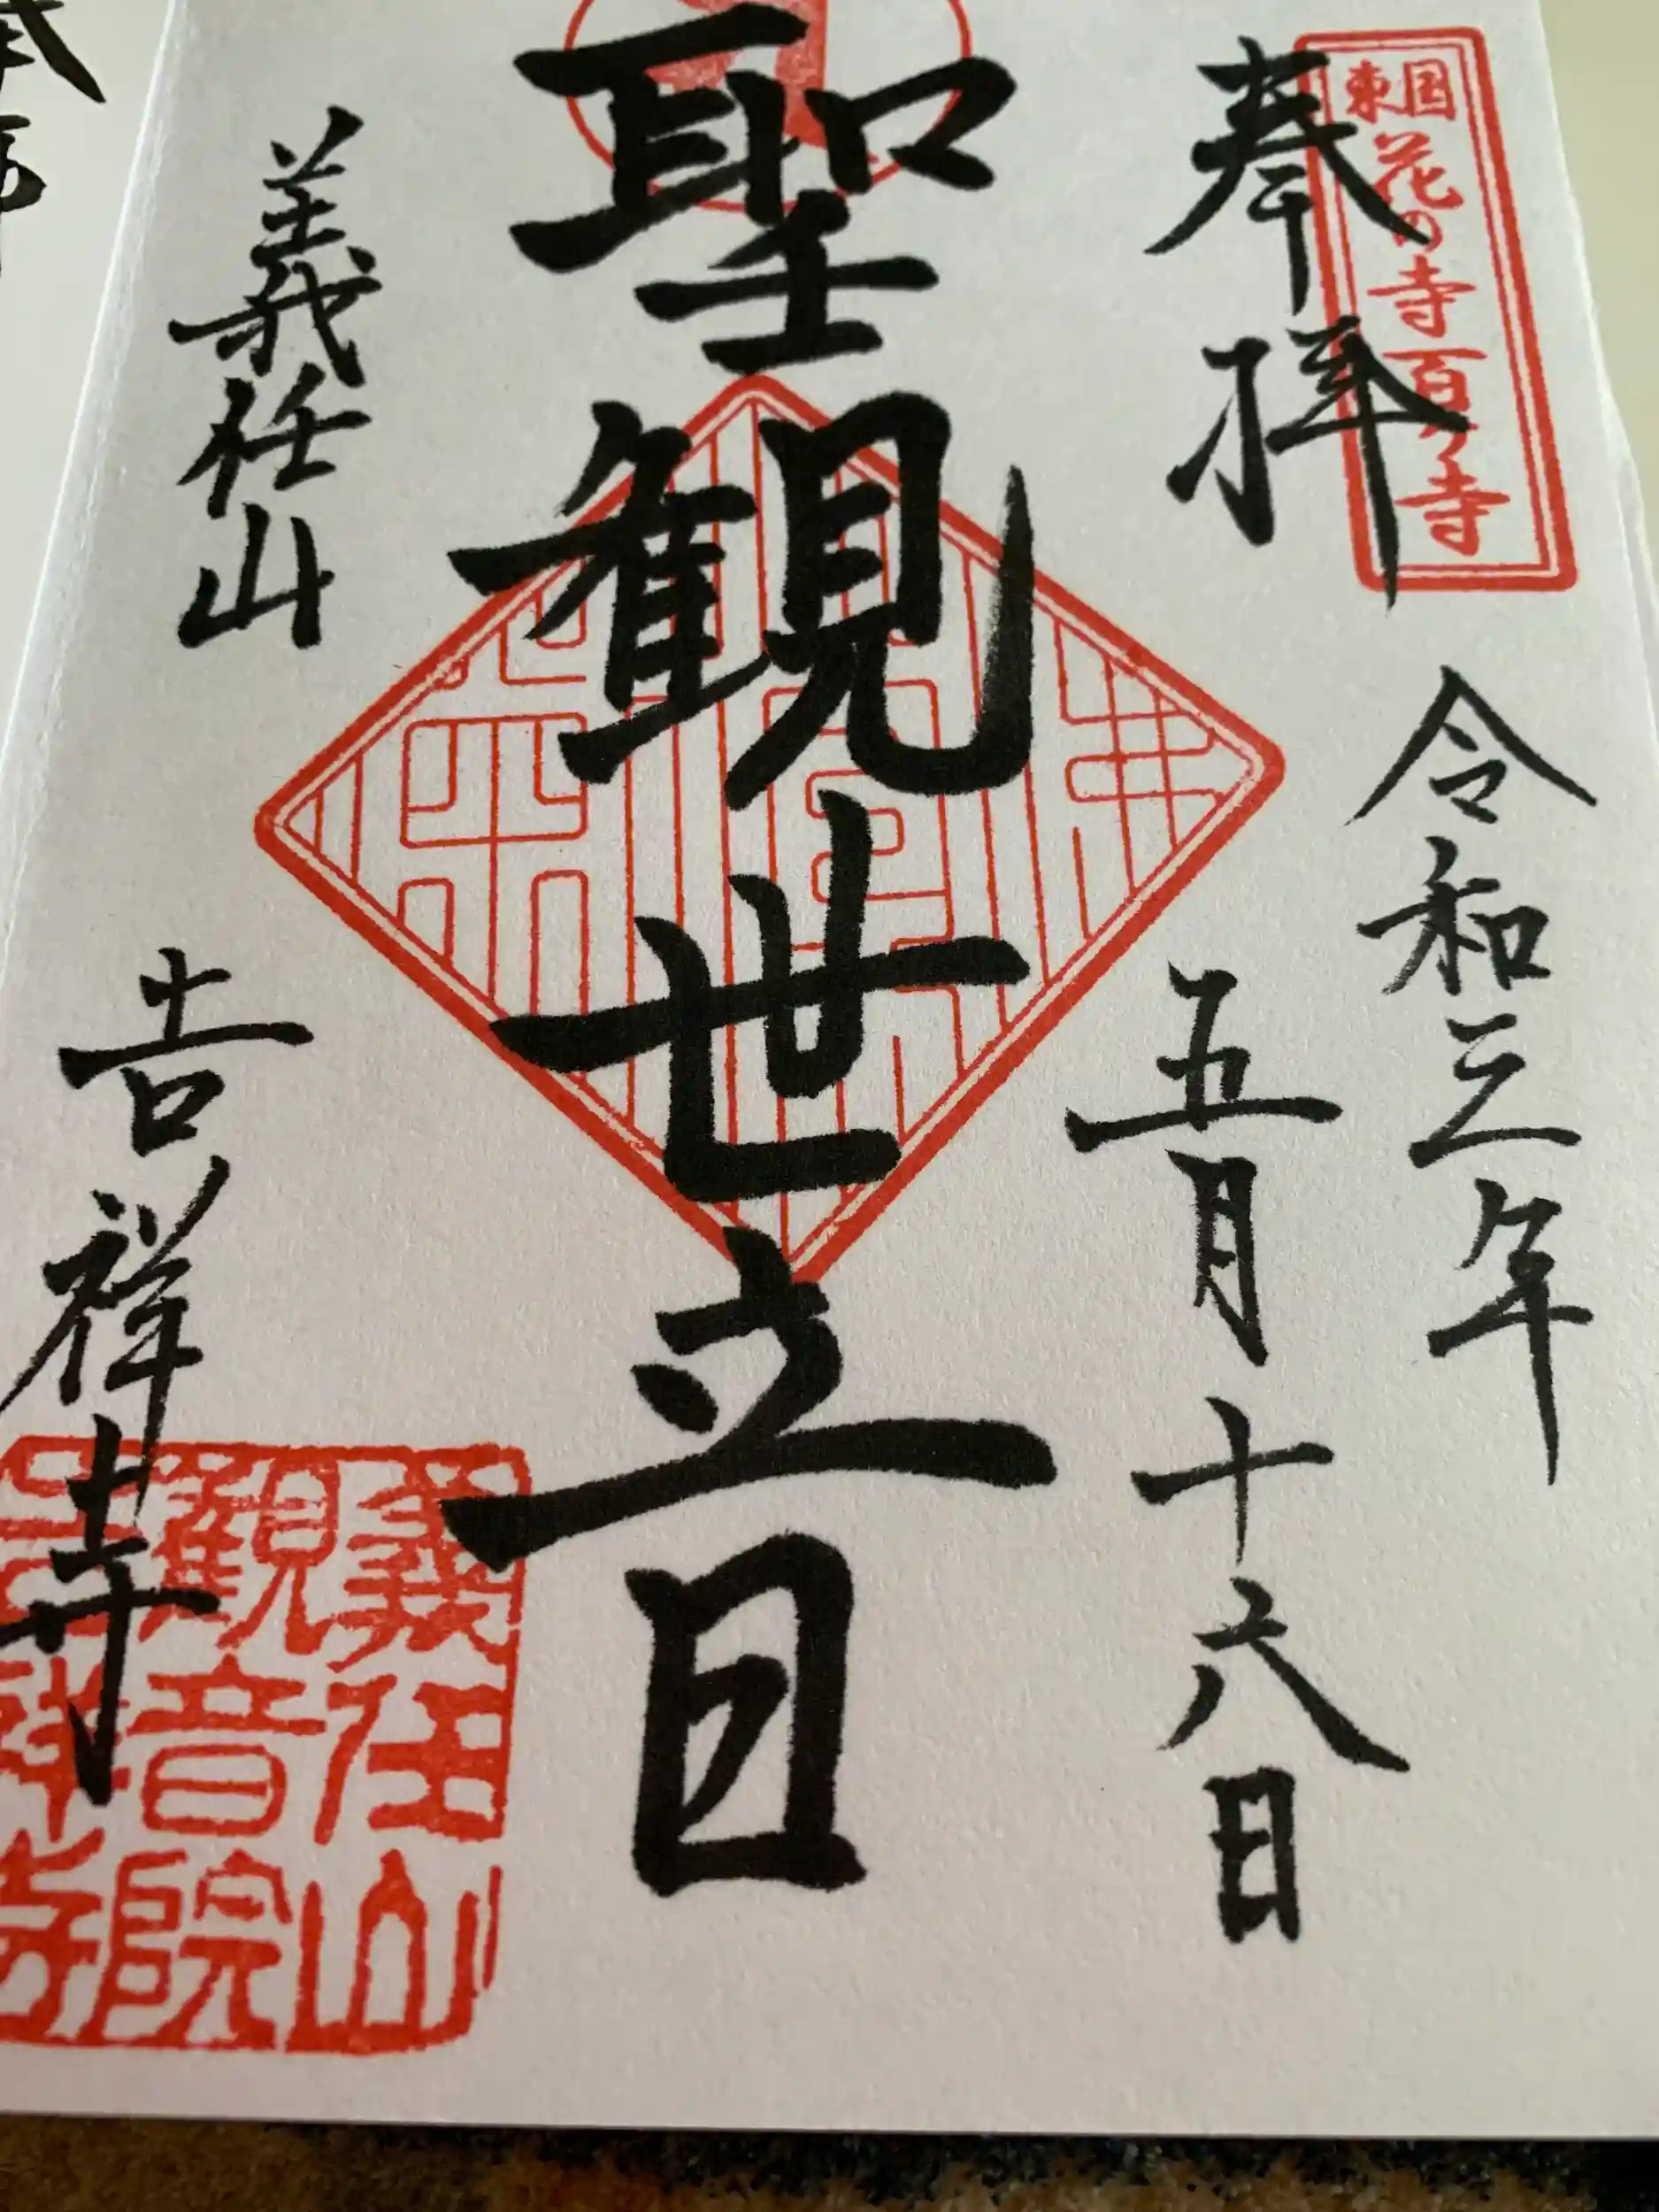 東国
花の寺百ヶ寺
奉拝
令和三年
五月十六日
聖観世音
義任山
吉祥寺
義任山
観音院
吉祥寺